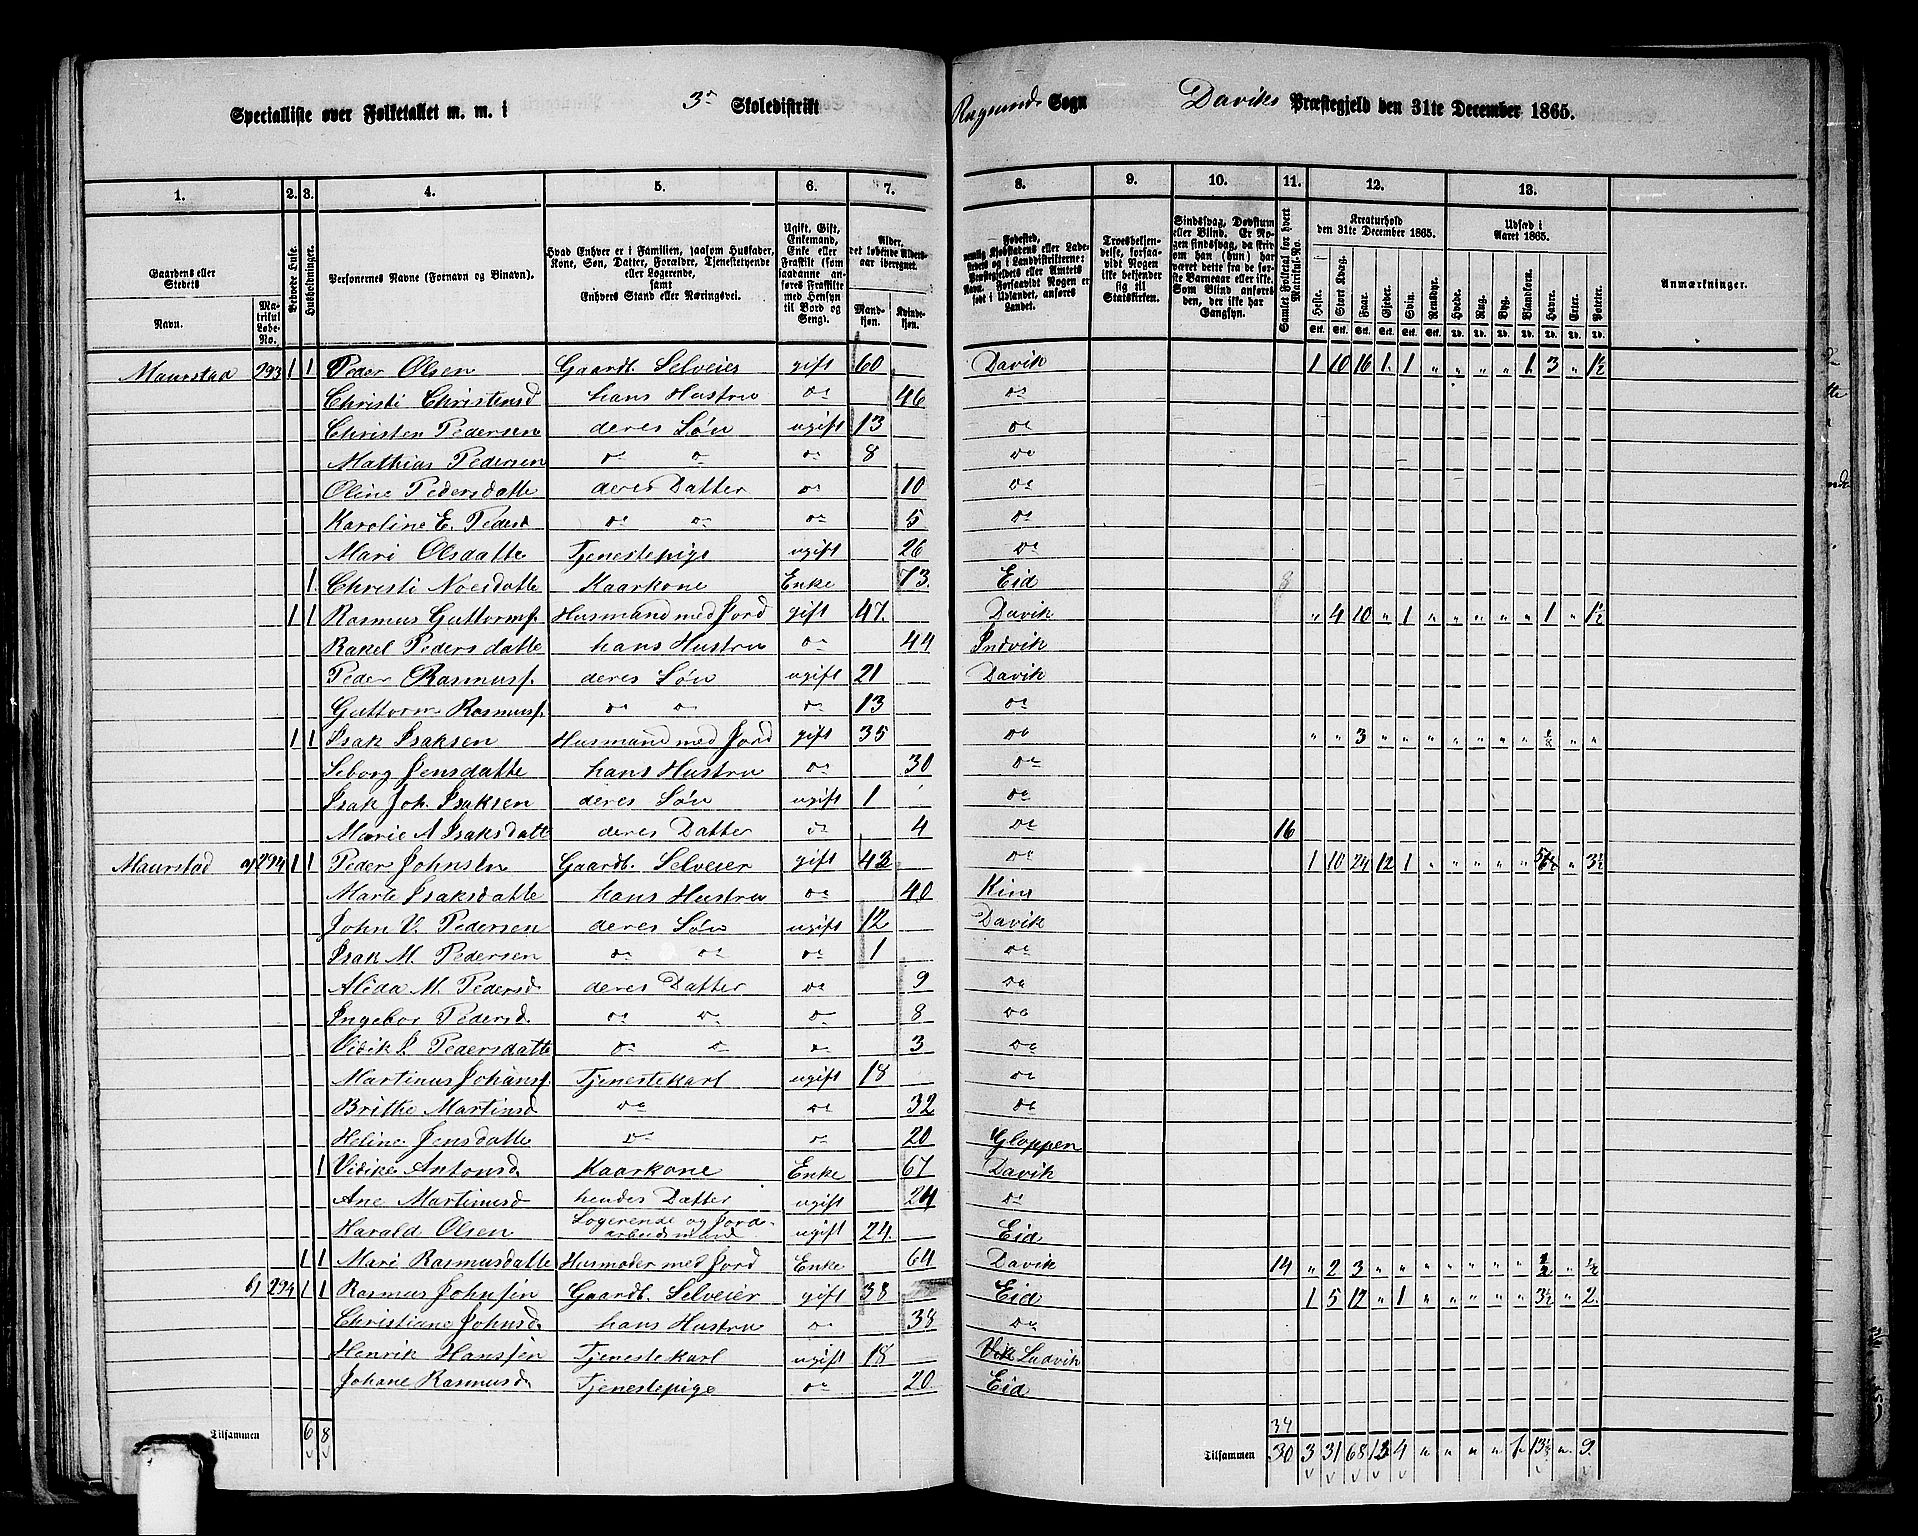 Specialliste over Folketallet m. m. i 3die Skoledistrikt Rugsunds Sogn Daviks Præstegjeld den 31te December 1865.
1. 2. 3. 4. 5. 6. 7. 8. 9. 10. 11. 12. 13.
Gaardens eller Stedets Navn. Matrikul Løbe-No. Beboede Huse. Husholdninger. Personernes Navne (Fornavn og Binavn). Hvad Enhver er i Familien, saasom Husfader, Kone, Søn, Datter, Forældre, Tjenestetyende eller Logerende, samt Enhvers Stand eller Næringsvei. Ugift, Gift, Enkemand, Enke eller Fraskilt (som saadanne anføres Fraskilte med Hensyn til Bord og Seng). Alder, det løbende Aldersaar iberegnet. Mandkjøn. Kvindekjøn.
Fødested, Troesbekjendelse, forsaavidt Nogen ikke bekjender sig til Statskirken. Sindssvag, Døvstum eller Blind. Samlet Folketal for hvert Matrikul-No. Kreaturhold den 31te December 1865. Udsæd i Aaret 1865. Anmærkninger.
Heste. Stort Kvæg. Faar. Gjeder. Svin. Rensdyr. Hvede. Rug. Byg. Blandkorn. Havre. Erter. Poteter.
Maurstad 293 1 1 Peder Olsen Gaardb. Selveier gift 60 Davik 1 10 16 1 1 " " " " 1 3 " 1½
Christi Christensd hans Hustru do 46 do
Christen Pedersen deres Søn ugift 13 do
Mathias Pedersen do do do 8 do
Oline Pedersdatte deres Datter do 10 do
Karoline E. Pedersd do do do 5 do
Mari Olsdatte Tjenestepige ugift 26 do
1 Christi Noesdatte Kaarkone Enke 73 Eid 8
1 1 Rasmus Guttormsf. Husmand med Jord gift 47 Davik " 4 10 " 1 " " " " " 1 " 1½
Rakel Pedersdatte hans Hustru do 44 Indvik
Peder Rasmusf. deres Søn ugift 21 Davik
Guttorm Rasmusf. do do do 13 do
1 1 Isak Isaksen Husmand med Jord gift 35 do " " 3 " " " " " " " " "
Seborg Jensdatte hans Hustru do 30 do
Isak Joh. Isaksen deres Søn ugift 1 do
Marie A Isaksdatte deres Datter do 4 do 16
Maurstad a) 294 1 1 Peder Johnsen Gaardb. Selveier gift 43 do 1 10 24 12 1 " " " " " " 3½
Marte Isaksdatte hans Hustru do 40 Kinn
John V. Pedersen deres Søn ugift 12 Davik
Isak M. Pedersen do do do 1 do
Alida M. Pedersd deres Datter do 9 do
Ingebor Pedersd. do do do 8 do
Vibik I. Pedersdatte do do do 3 do
Martinus Johansf. Tjenestekarl ugift 18 do
Brithe Martinsd do do 32 do
Heline Jensdatte do do 20 Gloppen
1 Vibike Antonsd. Kaarkone Enke 67 Davik
Ane Martinusd hendes Datter ugift 24 do
Harald Olsen Logerende og Jordarbeidsmand ugift 24. Eid
1 1 Mari Rasmusdatte Husmoder med Jord Enke 64 Davik 14 " 2 3 " " " " " " " ½ " ½
b) 294 1 1 Rasmus Johnsen Gaardb. Selveier gift 38 Eid 1 5 12 " 1 " " " " " 3½ " 2.
Christiane Johnsd. hans Hustru do 38 do
Henrik Hanssen Tjenestekarl ugift 18
Johane Rasmusd. Tjenestepige do 20 Eid
34
Tilsammen 6 8 Tilsammen 30 3 31 68 13 4 " " " " 1 13½ " 9.